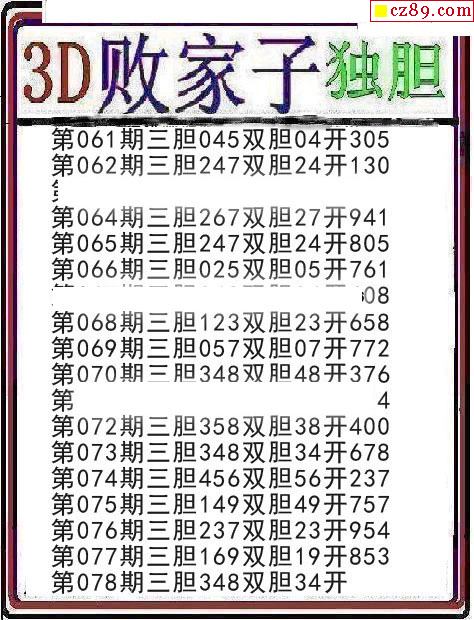 cz89.com
3D败家子独胆
第061期三胆045双胆04开305
第062期三胆247双胆24开130
第064期三胆267双胆27开941
第065期三胆247双胆24开805
第066期三胆025双胆05开761
08
第068期三胆123双胆23开658
第069期三胆057双胆07开772
第070期三胆348双胆48开376
第 4
第072期三胆358双胆38开400
第073期三胆348双胆34开678
第074期三胆456双胆56开237
第075期三胆149双胆49开757
第076期三胆237双胆23开954
第077期三胆169双胆19开853
第078期三胆348双胆34开